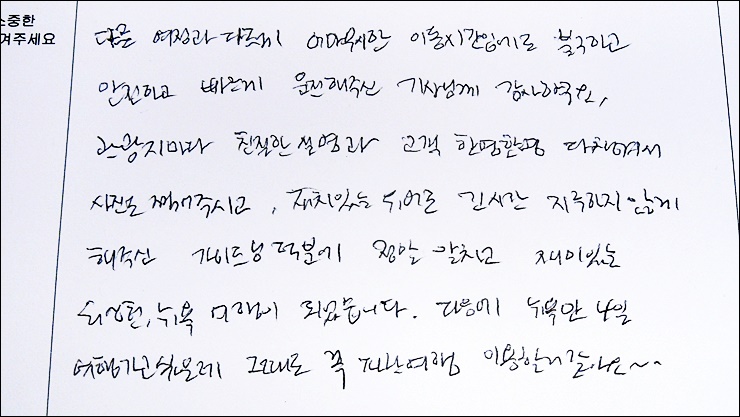 소중한
겨주세요
다른 여정과 다르게 어마무시한 이동시간임에도 불구하고
안전하고 빠르게 운전해주신 기사님께 감사하구요,
관광지마다 친절한 설명과 고객 한명한명 다 챙겨서
사진도 찍어주시고, 재치있는 위어로 긴시간 지루하지 않게
해주신 가이드님 덕분에 정말 알차고 재미있는
워싱턴, 뉴욕 여행이 되었습니다. 다음에 뉴욕만 4일
여행가고싶은데 그대로 쭉 여행 이용할거같아요~~